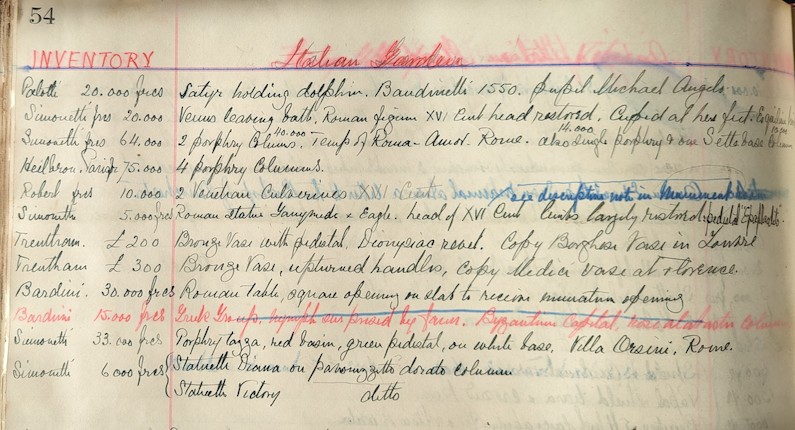 54
INVENTORY Italian Garden
Palotti 20.000 frcs Satyr holding dolphin. Bandinelli 1550. pupil Michael Angelo.
Simonetti frcs 20.000 Venus leaving bath, Roman figure XVI Cent head restored. Cupid at her feet.
Simonetti frcs 64.000 2 porphry Colums, 40.000 Temp of Roma-Amor. Rome. also Single porphry & one Sette base Column 14.000
Heilbron, Paris 75.000 4 porphry Columns.
Robert frcs 10.000 2 Venetian Culverines XVI see descriptive note in
Simonetti 5.000 frcs Roman Statue Ganymede & Eagle. head of XVI Cent limbs largely restored. pedestal
Trentham. £200 Bronze Vase with pedestal, Dionysiac revel. Copy Borghese Vase in Louvre
Trentham £300 Bronze Vase, upturned handles, Copy Medici vase at Florence.
Bardini. 30.000 frcs Roman Table, square opening on slab to receive
Bardini 15.000 frcs Greek Group, nymph surprised by faun. Byzantine Capital, rose alabaster column
Simonetti 33.000 frcs Porphry tazza, red basin, green pedestal, on white base, Villa Orsini, Rome.
Simonetti 6000 frcs Statuette Diana on pavonazzetto dorato column
Statuette Victory ditto